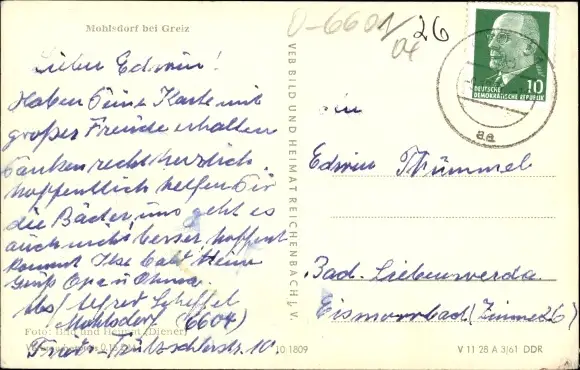 Mohlsdorf bei Greiz
Lieber Edwin!
Haben Deine Karte mit
großer Freude erhalten
Danken recht herzlich.
hoffentlich helfen Dir
die Bäder, uns geht es
auch nicht besser, hoffent
kommt Ilse bald Heim
Gruß Opa u Oma.
Abs/ Alfred Scheffel
Mohlsdorf (6604)
Foto: Bild und Heimat (Diener)
10
VEB BILD UND HEIMAT REICHENBACH i. V.
10 1809
0-6601/
04
26
10
DEUTSCHE
DEMOKRATISCHE REPUBLIK
aa
Edwin Thümmel
Bad-Liebenwerda
Eismoorbad (Zimmer 26)
V 11 28 A 3/61 DDR